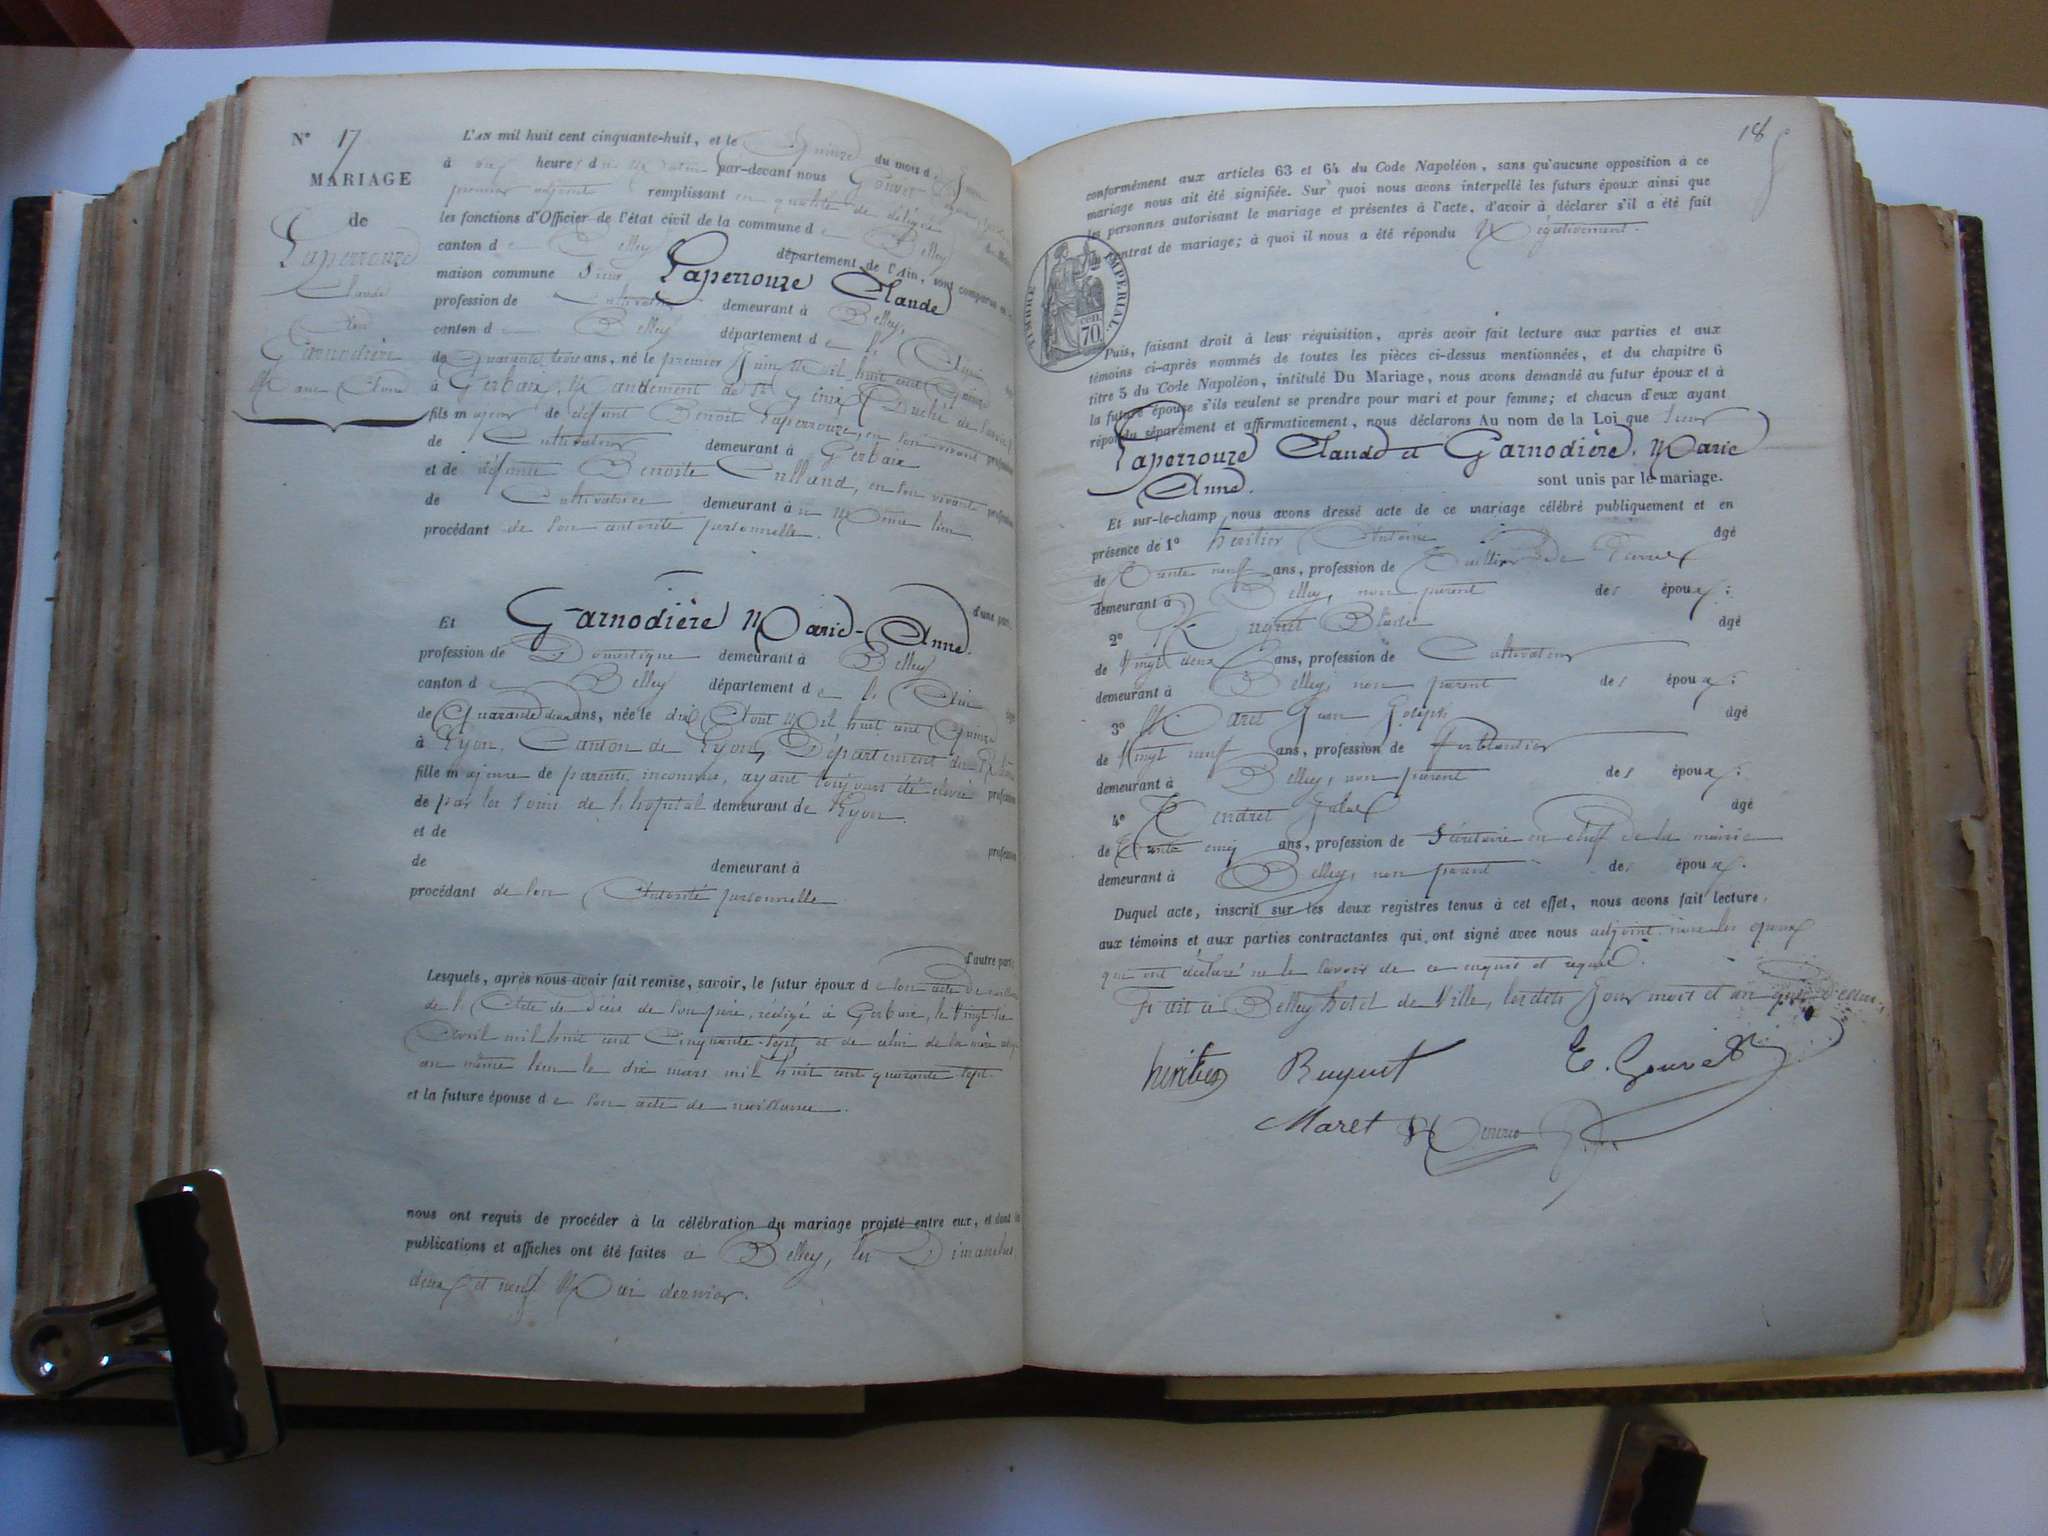 N° 17
MARIAGE
de
Laperrouze
Claude
et
Garnodière
Marie Anne
L'AN mil huit cent cinquante-huit, et le Quinze du mois de Juin
à heures du matin par-devant nous Gouvet
premier adjoint remplissant en qualité de délégué
les fonctions d'Officier de l'état civil de la commune de Belley
canton de Belley département de l'Ain, sont comparus en la
maison commune Sieur Laperrouze Claude
profession de Cultivateur demeurant à Belley,
canton de Belley département de l'Ain
de Quarante trois ans, né le premier Juin Mil huit cent Quinze
à Gerbaix, Mandement de St Genix Duché de Savoie
fils majeur de défunt Benoît Laperrouze, en son vivant profession
de Cultivateur demeurant à Gerbaix
et de défunte Benoite Culland, en son vivant profession
de Cultivatrice demeurant au Même lieu
procédant de son autorité personnelle.
d'une part,
Et Garnodière Marie-Anne.
profession de Domestique demeurant à Belley
canton de Belley département de l'Ain âgé
de Quarante deux ans, née le dix Août Mil huit cent Quinze
à Lyon, Canton de Lyon, Département du Rhône
fille majeure de parents inconnus, ayant toujours été élevée profession
de par les soins de l'hôpital demeurant de Lyon.
et de profession
de demeurant à
procédant de son Autorité personnelle
d'autre part;
Lesquels, après nous avoir fait remise, savoir, le futur époux de son acte de naissance
de l'Acte de décès de son père, rédigé à Gerbaix, le Vingt six
Avril mil huit cent Cinquante-sept, et de celui de la mère
au même lieu le dix mars mil huit cent quarante sept.
et la future épouse de son acte de naissance.
nous ont requis de procéder à la célébration du mariage projeté entre eux, et dont les
publications et affiches ont été faites à Belley, les Dimanches
deux et neuf Mai dernier.
18
conformément aux articles 63 et 64 du Code Napoléon, sans qu'aucune opposition à ce
mariage nous ait été signifiée. Sur quoi nous avons interpellé les futurs époux ainsi que
les personnes autorisant le mariage et présentes à l'acte, d'avoir à déclarer s'il a été fait
contrat de mariage; à quoi il nous a été répondu Négativement.
TIMBRE IMPERIAL
70 cen.
Puis, faisant droit à leur réquisition, après avoir fait lecture aux parties et aux
témoins ci-après nommés de toutes les pièces ci-dessus mentionnées, et du chapitre 6
titre 5 du Code Napoléon, intitulé Du Mariage, nous avons demandé au futur époux et à
la future épouse s'ils veulent se prendre pour mari et pour femme; et chacun d'eux ayant
répondu séparément et affirmativement, nous déclarons Au nom de la Loi que Sieur
Laperrouze Claude et Garnodière, Marie
Anne. sont unis par le mariage.
Et sur-le-champ nous avons dressé acte de ce mariage célébré publiquement et en
présence de 1° héritier Antoine âgé
de Trente neuf ans, profession de Tailleur de Pierres
demeurant à Belley, non parent des époux;
2° Ruguet Blaise âgé
de Vingt deux ans, profession de Cultivateur
demeurant à Belley, non parent des époux;
3° Maret Jean Joseph âgé
de Vingt neuf ans, profession de Ferblantier
demeurant à Belley, non parent des époux;
4° âgé
de Trente cinq ans, profession de Sécrétaire en chef de la mairie
demeurant à Belley, non parent des époux.
Duquel acte, inscrit sur les deux registres tenus à cet effet, nous avons fait lecture,
aux témoins et aux parties contractantes qui ont signé avec nous adjoint. non les époux
qui ont déclaré ne le savoir de ce enquis et requis.
Fait à Belley hotel de Ville, lesdits Jour mois et an que dessus.
héritier Ruguet E. Gouvet
Maret